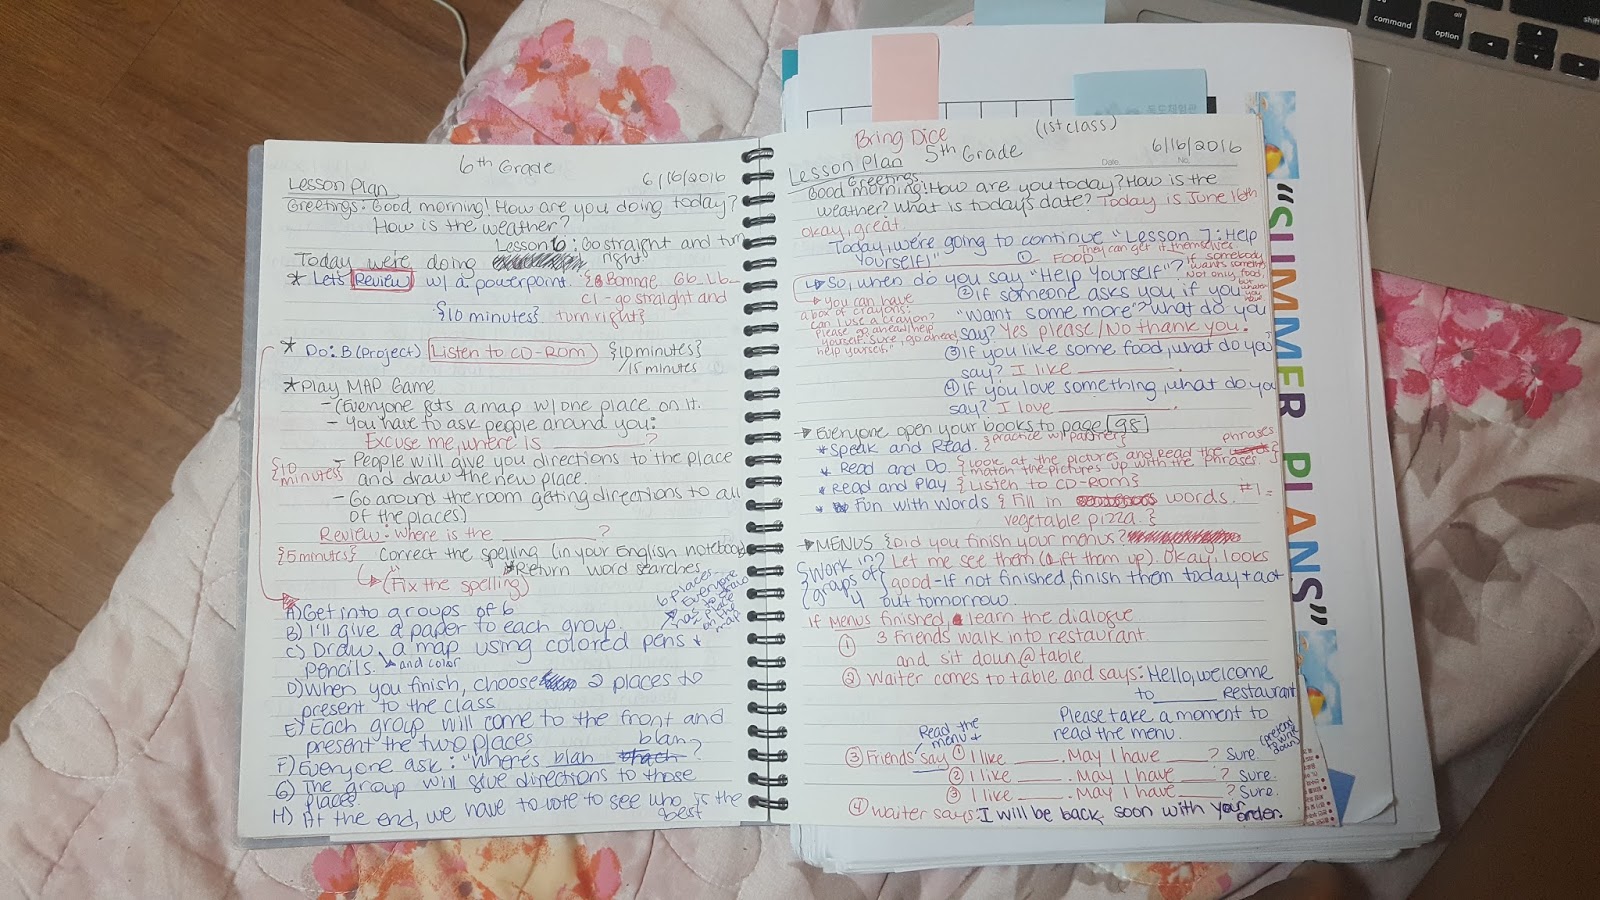 6th Grade
Lesson Plan
6/16/2016
Greetings: Good morning! How are you doing today?
How is the weather?
Lesson 6: Go straight and turn
right
Today we're doing
* Let's Review w/ a powerpoint.
C1 - go straight and
{10 minutes} turn right}
* Do: B (Project) Listen to CD-Rom {10 minutes}
/15 minutes
* Play MAP Game
- (Everyone gets a map w/ one place on it.
- You have to ask people around you:
Excuse me, where is ________?
{10 minutes}
- People will give you directions to the place
and draw the new place.
- Go around the room getting directions to all
of the places)
Review: Where is the ________?
{5 minutes} Correct the spelling (in your English notebook
* Return word searches
(Fix the spelling)
6 places
Everyone
has to draw
on the
map
A) Get into groups of 6
B) I'll give a paper to each group.
C) Draw a map using colored pens +
pencils. and color
D) When you finish, choose 2 places to
present to the class
E) Each group will come to the front and
present the two places
F) Everyone ask: "Where's blah blah ?
G) The group will give directions to those
places.
H) At the end, we have to vote to see who is the
best
Bring Dice
(1st class)
Lesson Plan 5th Grade
Date. No.
6/16/2016
Greetings:
Good morning! How are you today? How is the
weather? What is today's date? Today is June 16th
okay, great.
Today, we're going to continue "Lesson 7: Help
Yourself!"
① FOOD They can get it themselves
So, when do you say "Help Yourself"?
if somebody
wants something
Not only food,
but
② If someone asks you if you
"Want some more"? What do you
say? Yes please/No thank you.
You can have
a box of crayons.
Can I use a crayon?
Please go ahead/help
yourself. Sure, go ahead,
help yourself."
③ If you like some food, what do you
say? I like ________.
④ If you love something, what do you
say? I love ________.
Everyone open your books to page 98
* Speak and Read. {practice w/ partner}
* Read and Do. {look at the pictures and read the phrases
match the pictures up with the phrases.}
* Read and Play {Listen to CD-Rom}
* Fun with Words {Fill in words. #1 =
vegetable pizza.}
MENUS {Did you finish your menus?
{Work in
groups of
4
Let me see them (lift them up). Okay, looks
good - if not finished, finish them today + act
out tomorrow.
If menus finished, learn the dialogue
① 3 Friends walk into restaurant
and sit down @ table
② Waiter comes to table and says: Hello, welcome
to ____ restaurant
Please take a moment to
read the menu.
Read the
menu +
③ Friends say ① I like ____. May I have ____? Sure.
(pretend
to write
down)
② I like ____. May I have ____? Sure.
③ I like ____. May I have ____? Sure.
④ Waiter says: I will be back soon with your
order.
"SUMMER PLANS"
command
alt
option
shift